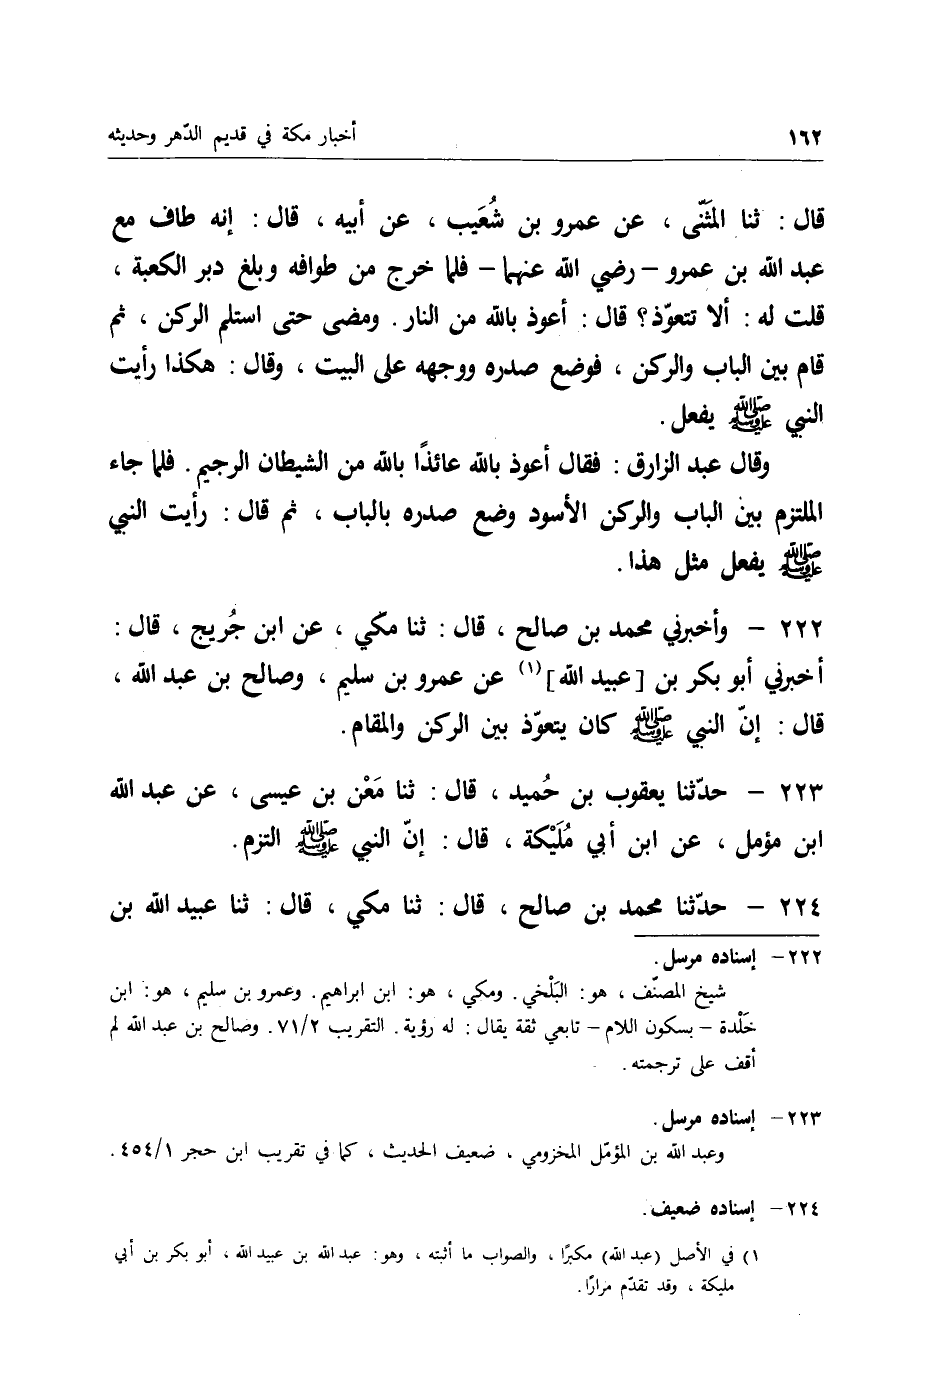 ١٦٢ أخبار مكة في قديم الدّهر وحديثه
قال : ثنا المَثَنّى ، عن عمرو بن شُعَيب ، عن أبيه ، قال : إنه طاف مع
عبد الله بن عمرو – رضي الله عنهما – فلما خرج من طوافه وبلغ دبر الكعبة ،
قلت له : ألا تتعوّذ؟ قال : أعوذ بالله من النار . ومضى حتى استلم الركن ، ثم
قام بين الباب والركن ، فوضع صدره ووجهه على البيت ، وقال : هكذا رأيت
النبي ﷺ يفعل .
وقال عبد الزارق : فقال أعوذ بالله عائذًا بالله من الشيطان الرجيم . فلما جاء
الملتزم بين الباب والركن الأسود وضع صدره بالباب ، ثم قال : رأيت النبي
ﷺ يفعل مثل هذا .
٢٢٢ – وأخبرني محمد بن صالح ، قال : ثنا مكّي ، عن ابن جُريج ، قال :
أخبرني أبو بكر بن [عبيد الله](١) عن عمرو بن سليم ، وصالح بن عبد الله ،
قال : إنّ النبي ﷺ كان يتعوّذ بين الركن والمقام .
٢٢٣ – حدّثنا يعقوب بن حُميد ، قال : ثنا مَعْن بن عيسى ، عن عبد الله
ابن مؤمل ، عن ابن أبي مُلَيْكة ، قال : إنّ النبي ﷺ التزم .
٢٢٤ – حدّثنا محمد بن صالح ، قال : ثنا مكي ، قال : ثنا عبيد الله بن
٢٢٢– إسناده مرسل .
شيخ المصنّف ، هو : البَلْخي . ومكي ، هو : ابن ابراهيم . وعمرو بن سليم ، هو : ابن
خَلْدة – بسكون اللام – تابعي ثقة يقال : له رؤية . التقريب ٧١/٢ . وصالح بن عبد الله لم
أقف على ترجمته .
٢٢٣– إسناده مرسل .
وعبد الله بن المؤمّل المخزومي ، ضعيف الحديث ، كما في تقريب ابن حجر ٤٥٤/١ .
٢٢٤– إسناده ضعيف .
١) في الأصل (عبد الله) مكبرًا ، والصواب ما أثبته ، وهو : عبد الله بن عبيد الله ، أبو بكر بن أبي
مليكة ، وقد تقدّم مرارًا .